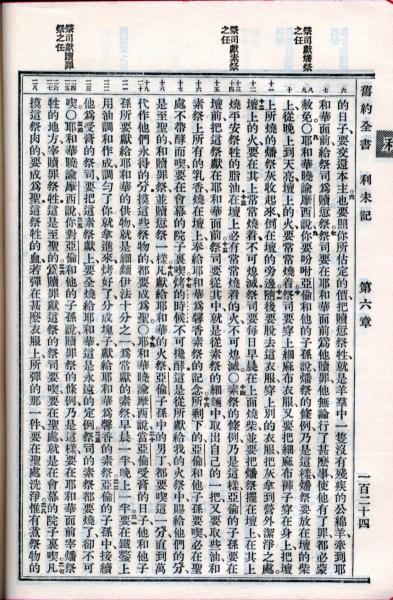 舊約全書 利未記 第六章 一百三十四
祭司獻燔祭
之任
祭司獻素祭
之任
祭司獻贖罪
祭之任
的日子要交還本主也要照你所估定的價把贖愆祭牲就是羊羣中一隻沒有殘疾的公綿羊牽到耶
和華面前給祭司為贖愆祭祭司要在耶和華面前為他贖罪他無論行了甚麽事使他有了罪都必蒙
赦免○耶和華曉諭摩西說你要吩咐亞倫和他的子孫說燔祭的條例乃是這樣燔祭要放在壇的柴
上從晚上到天亮壇上的火要常常燒着祭司要穿上細麻布衣服又要把細麻布褲子穿在身上把壇
上所燒的燔祭灰收起來倒在壇的旁邊隨後要脫去這衣服穿上別的衣服把灰拿到營外潔淨之處
壇上的火要在其上常常燒着不可熄滅祭司要每日早晨在上面燒柴並要把燔祭擺在壇上在其上
燒平安祭牲的脂油在壇上必有常常燒着的火不可熄滅○素祭的條例乃是這樣亞倫的子孫要在
壇前把這祭獻在耶和華面前祭司要從其中就是從素祭的細麵中取出自己的一把又要取些油和
素祭上所有的乳香燒在壇上奉給耶和華為馨香素祭的紀念所剩下的亞倫和他子孫要喫必在聖
處不帶酵而喫要在會幕的院子裏喫烤的時候不可攙酵這是從所獻給我的火祭中賜給他們的分
是至聖的和贖罪祭並贖愆祭一樣凡獻給耶和華的火祭亞倫子孫中的男丁都要喫這一分直到萬
代作他們永得的分摸這些祭物的都要成為聖○耶和華曉諭摩西說當亞倫受膏的日子他和他子
孫所要獻給耶和華的供物就是細麵伊法十分之一為常獻的素祭早晨一半晚上一半要在鐵鏊上
用油調和作成調勻了你就拿進來烤好了分成塊子獻給耶和華為馨香的素祭亞倫的子孫中接續
他為受膏的祭司要把這素祭獻上要全燒給耶和華這是永遠的定例祭司的素祭都要燒了卻不可
喫○耶和華曉諭摩西說你對亞倫和他的子孫說贖罪祭的條例乃是這樣要在耶和華面前宰燔祭
牲的地方宰贖罪祭牲這是至聖的為贖罪獻這祭的祭司要喫要在聖處就是在會幕的院子裏喫凡
摸這祭肉的要成為聖這祭牲的血若彈在甚麽衣服上所彈的那一件要在聖處洗淨惟有煮祭物的